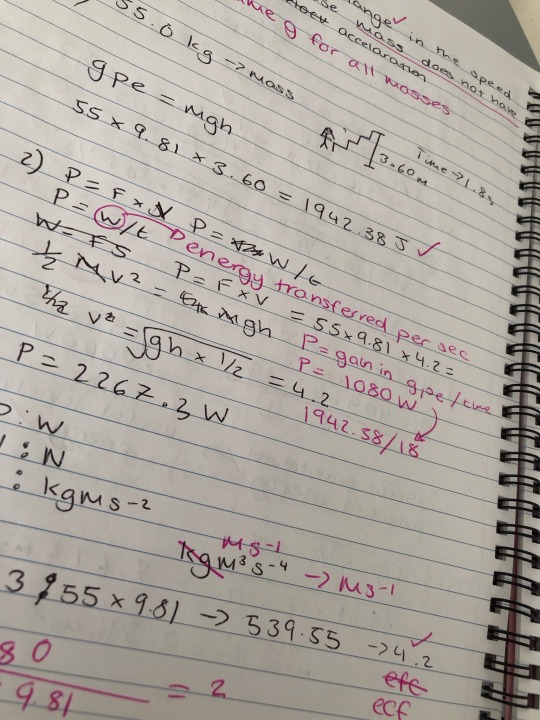 change ✓ in the speed
mass does not have
acclaration
same g for all masses
55.0 kg → mass
gpe = mgh
Time → 1.8s
3.60m
55 × 9.81 × 3.60 = 1942.38 J ✓
2) P = F × V P = W/t
P = W/t energy transferred per sec
W = FS P = F × V = 55×9.81 × 4.2 =
1/2 MV² = Mgh P = gain in gpe/time
1/2 V² = √gh × 1/2 = 4.2 P = 1080 W
P = 2267.3 W 1942.38/18
: W
: N
: kgms-2
ms-1
kgm³s-4 → ms-1
3 55 × 9.81 → 539.55 → 4.2 ✓
80 efc
9.81 = 2 ecf